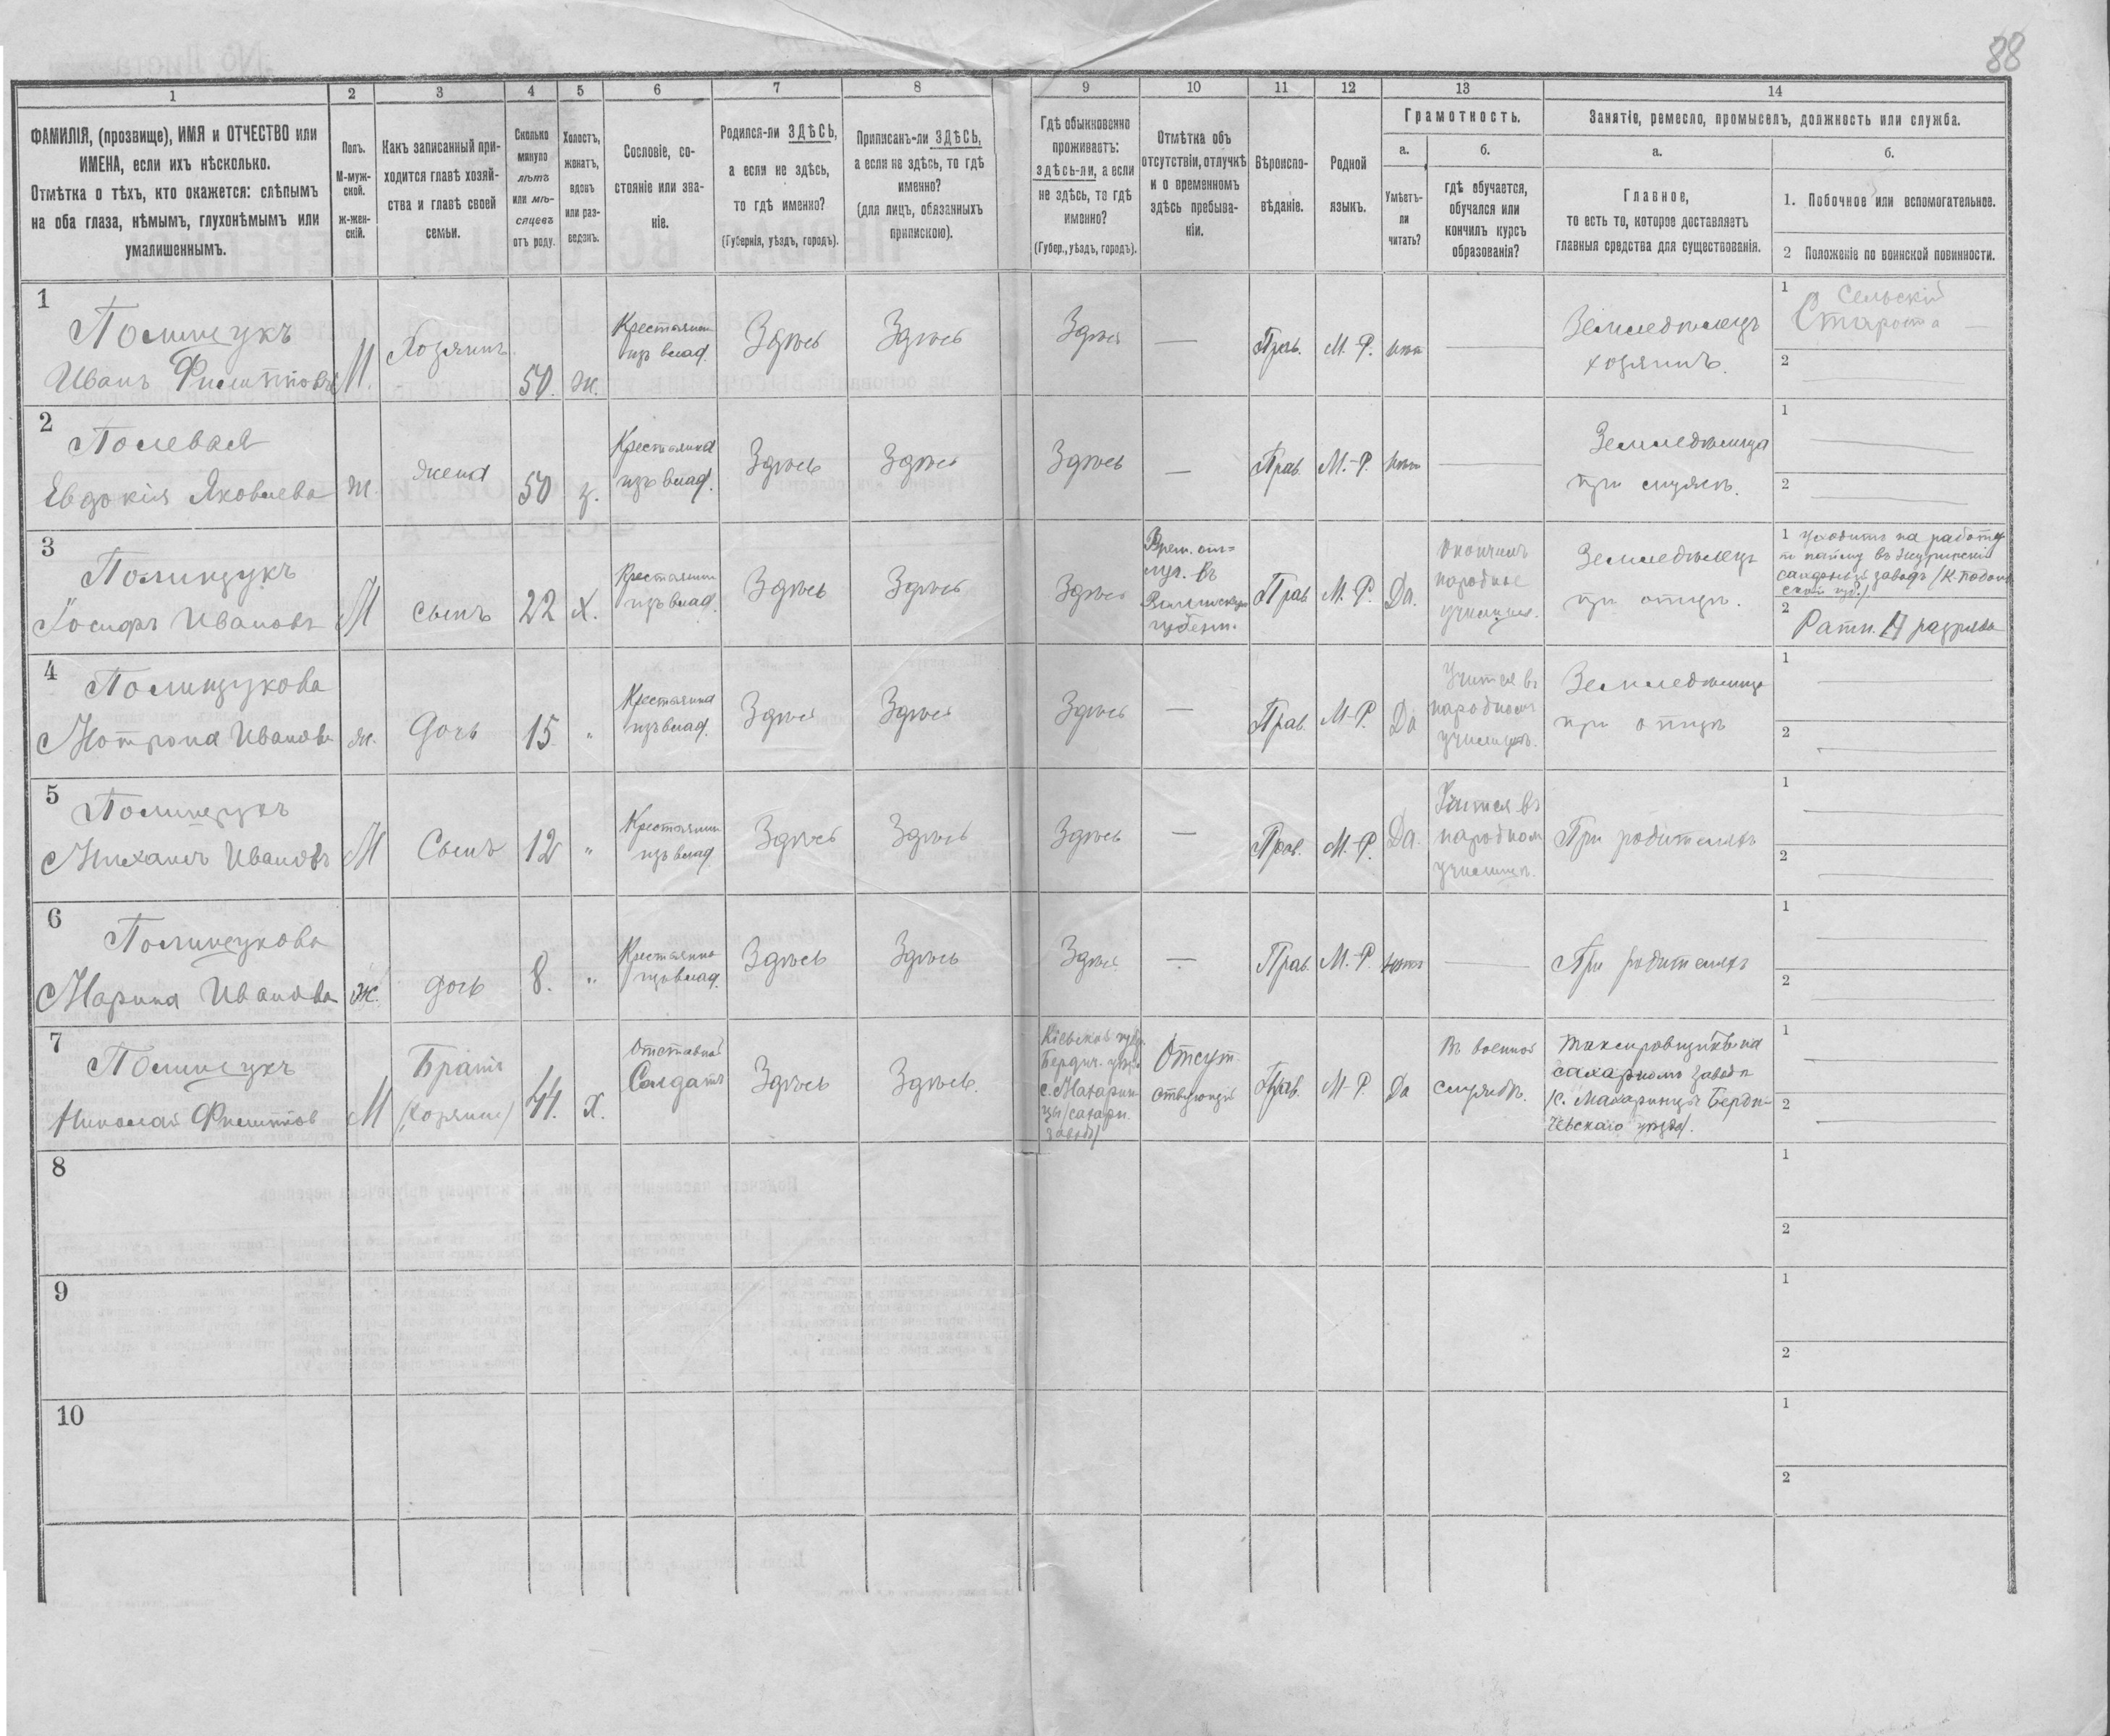 88
1 2 3 4 5 6 7 8 9 10 11 12 13 14
ФАМИЛІЯ, (прозвище), ИМЯ и ОТЧЕСТВО или
ИМЕНА, если ихъ нѣсколько.
Отмѣтка о тѣхъ, кто окажется: слѣпымъ
на оба глаза, нѣмымъ, глухонѣмымъ или
умалишеннымъ.
Полъ.
М-муж-
ской.
ж-жен-
скій.
Какъ записанный при-
ходится главѣ хозяй-
ства и главѣ своей
семьи.
Сколько
минуло
лѣтъ
или мѣ-
сяцевъ
отъ роду.
Холостъ,
женатъ,
вдовъ
или раз-
веденъ.
Сословіе, со-
стояніе или зва-
ніе.
Родился-ли ЗДѢСЬ,
а если не здѣсь,
то гдѣ именно?
(Губернія, уѣздъ, городъ).
Приписанъ-ли ЗДѢСЬ,
а если не здѣсь, то гдѣ
именно?
(для лицъ, обязанныхъ
припискою).
Гдѣ обыкновенно
проживаетъ:
здѣсь-ли, а если
не здѣсь, то гдѣ
именно?
(Губер., уѣздъ, городъ).
Отмѣтка объ
отсутствіи, отлучкѣ
и о временномъ
здѣсь пребыва-
ніи.
Вѣроиспо-
вѣданіе.
Родной
языкъ.
Грамотность.
а.
Умѣетъ-
ли
читать?
б.
гдѣ обучается,
обучался или
кончилъ курсъ
образованія?
Занятіе, ремесло, промыселъ, должность или служба.
а.
Главное,
то есть то, которое доставляетъ
главныя средства для существованія.
б.
1. Побочное или вспомогательное.
2 Положеніе по воинской повинности.
1
Полищукъ
Иванъ Филипповъ
М.
Хозяинъ
50.
ж.
Крестьянин
изъ влад.
Здѣсь
Здѣсь
Здѣсь
—
Прав.
М.-Р.
нѣт
—
Земледѣлецъ
хозяинъ.
1 Сельскій
Староста
2
2
Полевая
Евдокія Яковлева
ж.
жена
50
з.
Крестьянка
изъ влад.
Здѣсь
Здѣсь
Здѣсь
—
Прав.
М.-Р.
нѣт
—
Земледѣлица
при мужѣ.
1
2
3
Полищукъ
Іосифъ Ивановъ
М
сынъ
22
х.
Крестьянин
изъ влад.
Здѣсь
Здѣсь
Здѣсь
Врем. от=
луч. въ
губерн.
Прав
М.-Р.
Да.
Окончилъ
народное
училище.
Земледѣлецъ
при отцѣ.
1 Уходитъ на работы
заводъ
2 Ратн. II разряда
4
Полищукова
Мотрона Иванова
ж.
дочь
15
"
Крестьянка
изъ влад.
Здѣсь
Здѣсь
Здѣсь
—
Прав.
М-Р.
Да
Учится въ
народномъ
училищѣ.
Земледѣлица
при отцѣ
1
2
5
Полищукъ
Михаилъ Ивановъ
М
Сынъ
12
"
Крестьянин
изъ влад.
Здѣсь
Здѣсь
Здѣсь
—
Прав.
М.-Р.
Да.
Учится въ
народном
училищѣ.
При родителяхъ
1
2
6
Полищукова
Марина Иванова
ж.
дочь
8.
"
Крестьянка
изъ влад.
Здѣсь
Здѣсь
Здѣсь
—
Прав.
М.-Р.
нѣтъ
—
При родителяхъ
1
2
7
Полищукъ
Николай Филиппов
М
Братъ
(хозяина)
44.
х.
Отставной
Солдатъ
Здѣсь
Здѣсь.
Кіевской губ.
Бердич. уѣзда
с. Махарин-
цы (сахарн.
заводъ)
Отсут-
ствующій
Прав.
М-Р.
Да
Въ военной
службѣ.
Таксировщикъ на
сахарномъ заводѣ
(с. Махаринцы Берди-
чевскаго уѣзда).
1
2
8
1
2
9
1
2
10
1
2